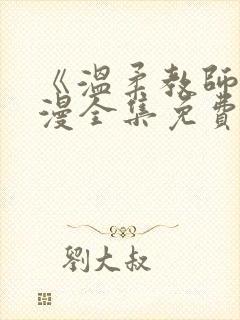 《溫柔教師
漫全集免費
劉大叔